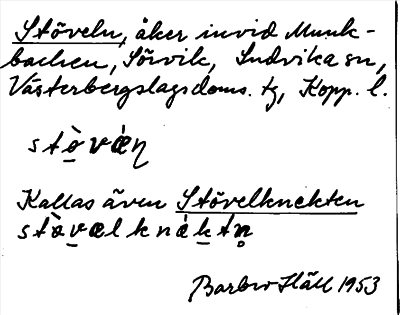 Stöveln, åker invid Munk-
backen, Sörvik, Ludvika sn,
Västerbergslagsdoms. tg, Kopp. l.
stòvæ̀ṇ
Kallas även Stövelknekten
stòvælknæ̀ktn̥
Barbro Häll 1953